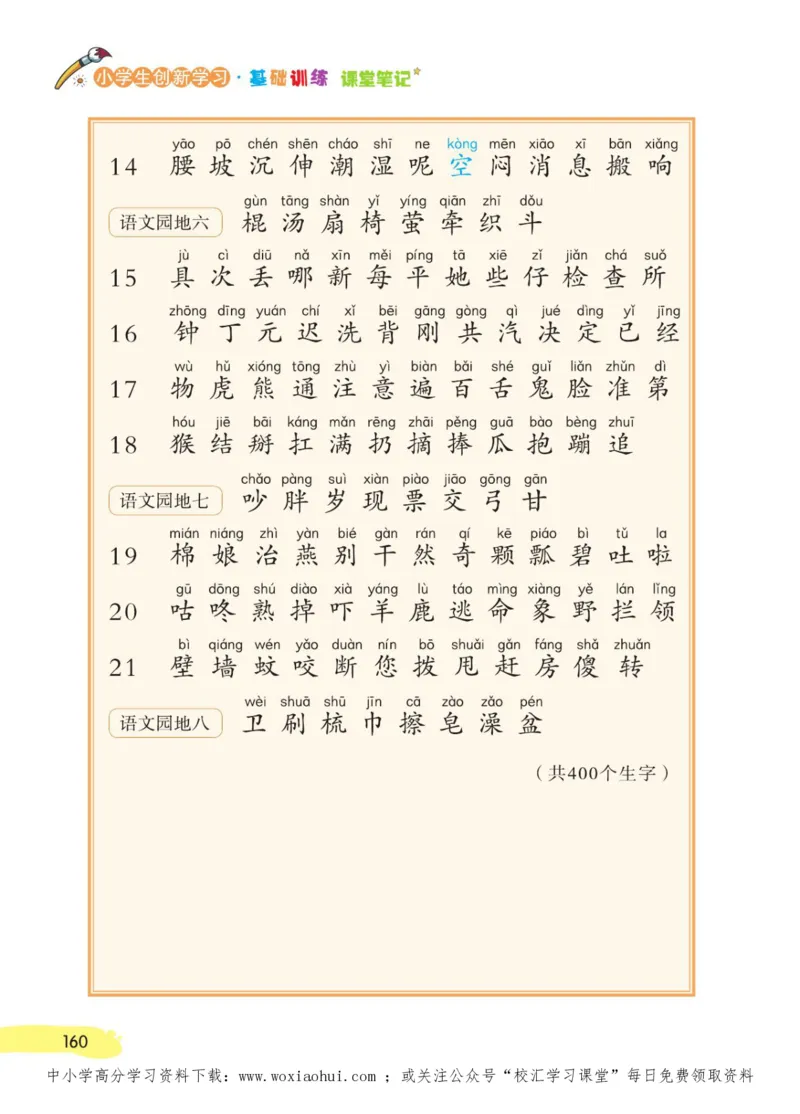 小学生创新学习·基础训练 课堂笔记
yāo pō chén shēn cháo shī ne kòng mēn xiāo xī bān xiǎng
14 腰 坡 沉 伸 潮 湿 呢 空 闷 消 息 搬 响
gùn tāng shàn yǐ yíng qiān zhī dǒu
语文园地六 棍 汤 扇 椅 萤 牵 织 斗
jù cì diū nǎ xīn měi píng tā xiē zǐ jiǎn chá suǒ
15 具 次 丢 哪 新 每 平 她 些 仔 检 查 所
zhōng dīng yuán chí xǐ bēi gāng gòng qì jué dìng yǐ jīng
16 钟 丁 元 迟 洗 背 刚 共 汽 决 定 已 经
wù hǔ xióng tōng zhù yì biàn bǎi shé guǐ liǎn zhǔn dì
17 物 虎 熊 通 注 意 遍 百 舌 鬼 脸 准 第
hóu jiē bāi káng mǎn rēng zhāi pěng guā bào bèng zhuī
18 猴 结 掰 扛 满 扔 摘 捧 瓜 抱 蹦 追
chǎo pàng suì xiàn piào jiāo gōng gān
语文园地七 吵 胖 岁 现 票 交 弓 甘
mián niáng zhì yàn bié gàn rán qí kē piáo bì tǔ la
19 棉 娘 治 燕 别 干 然 奇 颗 瓢 碧 吐 啦
gū dōng shú diào xià yáng lù táo mìng xiàng yě lán lǐng
20 咕 咚 熟 掉 吓 羊 鹿 逃 命 象 野 拦 领
bì qiáng wén yǎo duàn nín bō shuǎi gǎn fáng shǎ zhuǎn
21 壁 墙 蚊 咬 断 您 拨 甩 赶 房 傻 转
wèi shuā shū jīn cā zào zǎo pén
语文园地八 卫 刷 梳 巾 擦 皂 澡 盆
（共400个生字）
160
中小学高分学习资料下载：www.woxiaohui.com ；或关注公众号“校汇学习课堂”每日免费领取资料